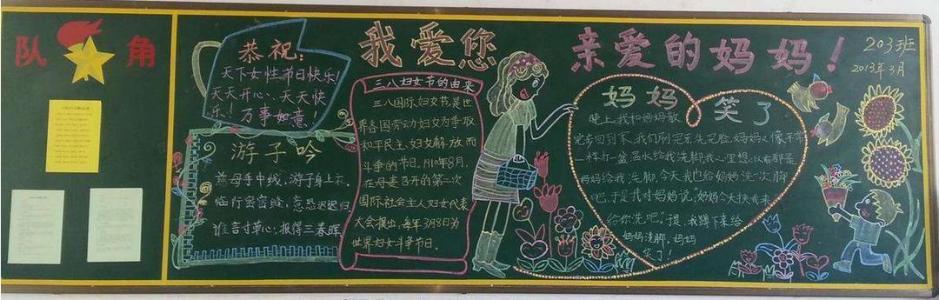 队 角
恭祝：
天下女性节日快乐！
天天开心、天天快
乐！万事如意！
游子吟
慈母手中线，游子身上衣。
临行密密缝，意恐迟迟归
谁言寸草心，报得三春晖
我爱您
亲爱的妈妈！
203班
2013年3月
三八妇女节的由来
三八国际妇女节是世
界各国劳动妇女为争取
和平民主、妇女解放而
斗争的节日。1910年8月，
在丹麦召开的第一次
国际社会主义妇女代表
大会提出，每年3月8日为
世界妇女斗争节日。
妈妈
笑了
晚上，我和妈妈散
完步回到家，我们刷完牙、洗完脸，妈妈又像平常
一样打一盆温水给我洗脚。我心里想：
妈妈给我洗脚，今天我也给妈妈洗一次脚
吧，于是我对妈妈说："妈妈今天我来
给你洗吧。"于是，我蹲下来给
妈妈洗脚，妈妈
笑了！